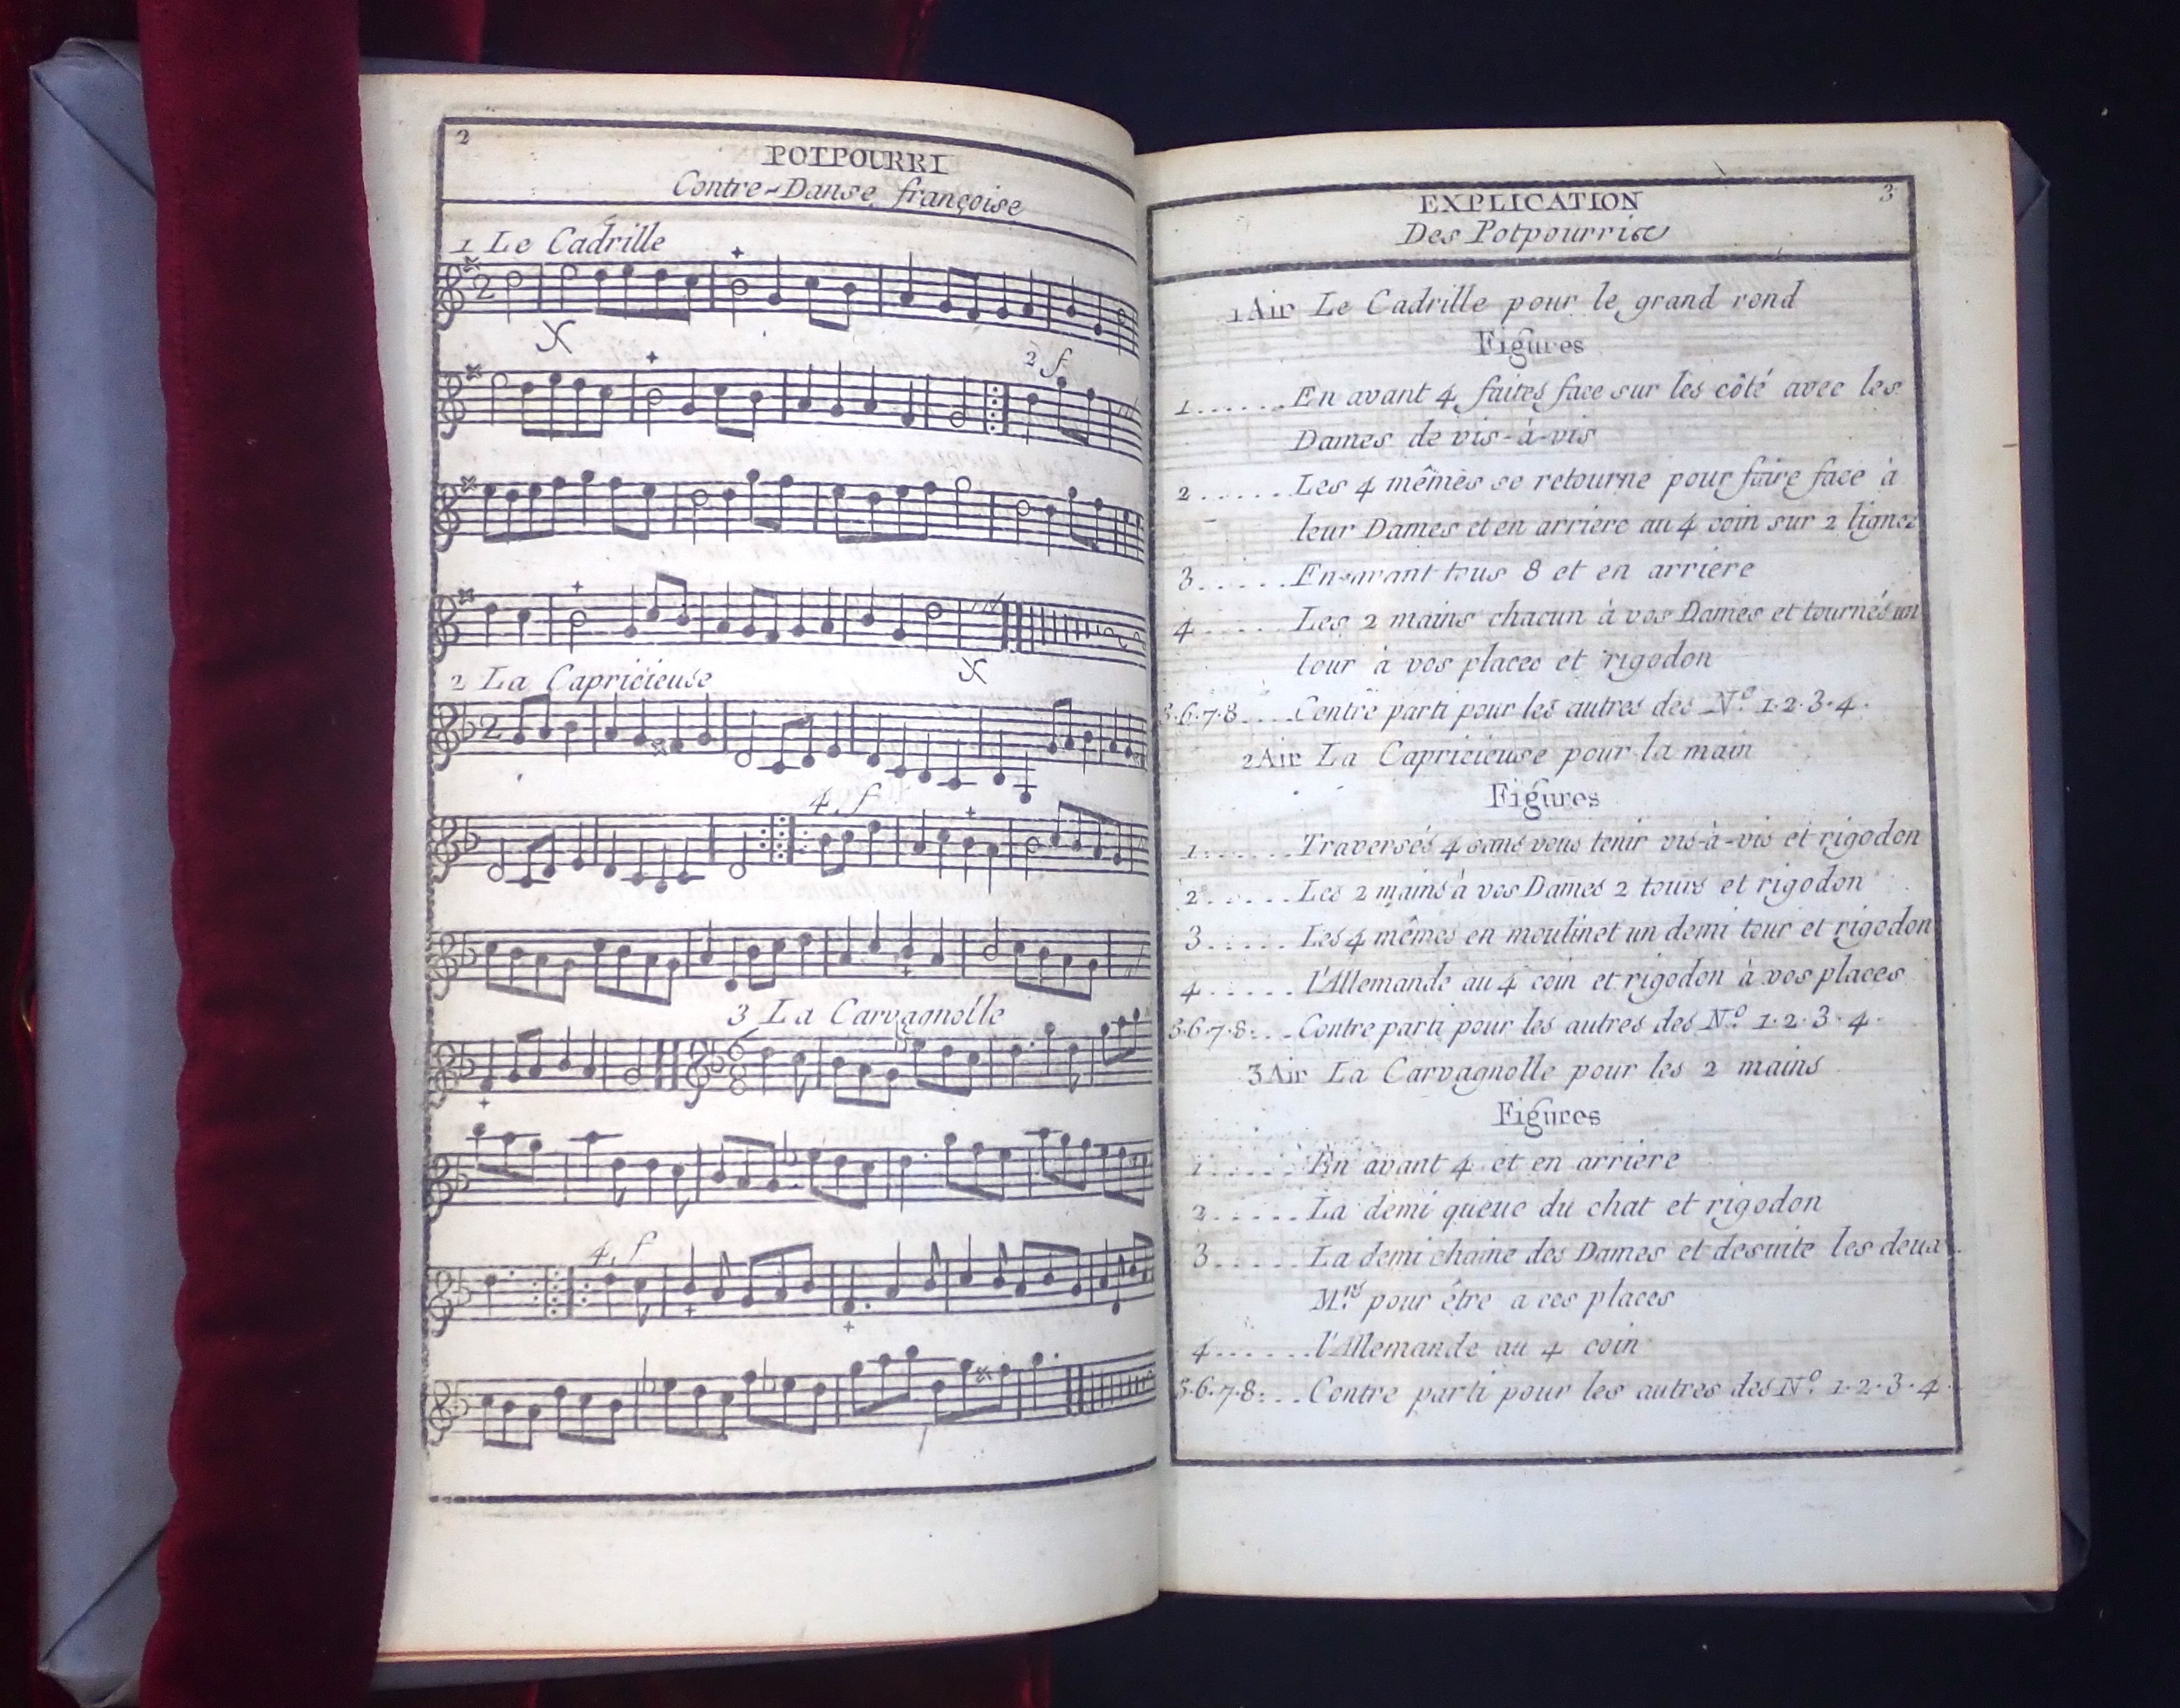 2
POTPOURRI
Contre-Danse françoise
1 Le Cadrille
2 f
2 La Capricieuse
4 f
3 La Carvagnolle
4 f
3
EXPLICATION
Des Potpourris
1 Air Le Cadrille pour le grand rond
Figures
1......En avant 4 faites face sur les côté avec les
Dames de vis-à-vis
2......Les 4 mêmes se retourne pour faire face à
leur Dames et en arriere au 4 coin sur 2 lignes
3......En avant tous 8 et en arriere
4......Les 2 mains chacun à vos Dames et tournés un
tour à vos places et rigodon
5.6.7.8....Contre parti pour les autres des No. 1.2.3.4.
2 Air La Capricieuse pour la main
Figures
1......Traversés 4 sans vous tenir vis-à-vis et rigodon
2......Les 2 mains à vos Dames 2 tours et rigodon
3......Les 4 mêmes en moulinet un demi tour et rigodon
4......l'Allemande au 4 coin et rigodon à vos places
5.6.7.8:...Contre parti pour les autres des No. 1.2.3.4.
3 Air La Carvagnolle pour les 2 mains
Figures
1......En avant 4 et en arriere
2......La demi queue du chat et rigodon
3......La demi chaine des Dames et desuite les deux
Mrs. pour être a ces places
4......l'Allemande au 4 coin
5.6.7.8:...Contre parti pour les autres des No. 1.2.3.4.